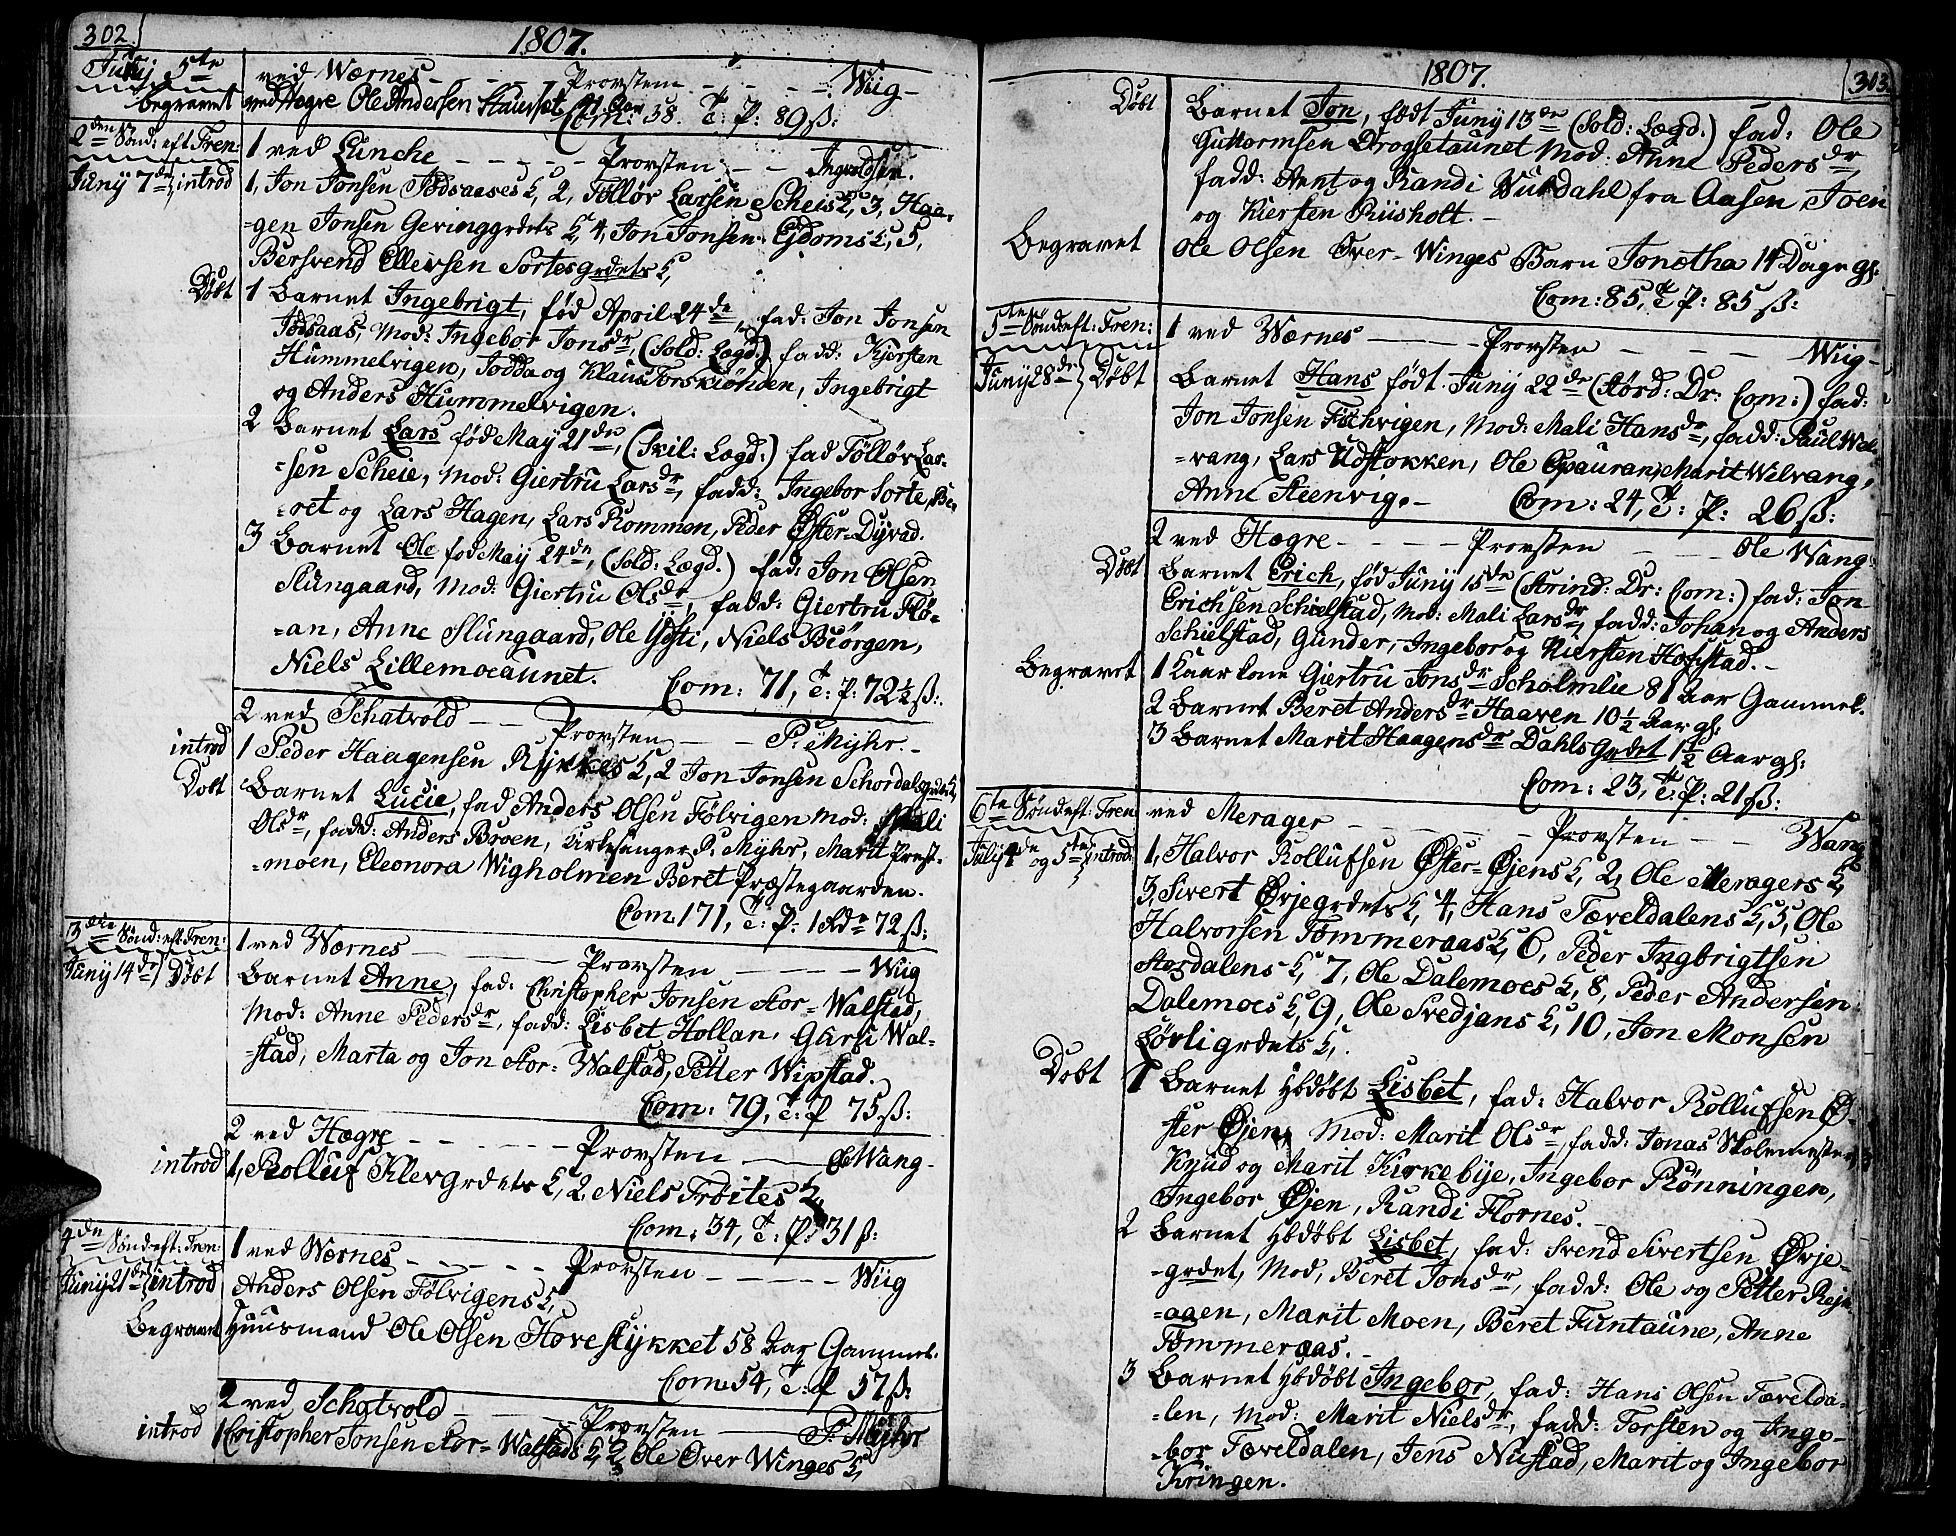 302.
1807.
Junij 5te ved Wærnes - - - Provsten - - - Wiig -
begravet ved Hegre Ole Andersen 41 Aar
Com: 38. T: P: 89 ß:
2den Sønd: eft Tren: 1 ved Lunche - - - - - Provsten - - Ingvoldsen.
Junij 7de, introd 1, Jon Jonsen Jødsaases K, 2, Tølløv Larsen Scheis K, 3, Haa-
-gen Jonsen Geringgrdets K, 4, Jon Jonsen Ejdoms K, 5,
Bersvend Ellevsen Sortesgrdets K,
Døbt 1 Barnet Ingebrigt, fød April 24de, fad: Jon Jonsen
Jødsaas, Mod: Ingebor Jonsdr, (Sold: Lægd:) fadd: Kjersten
Hummelvigen, Jodda og Klaus Torskiønen, Ingebrigt
og Anders Hummelvigen.
2 Barnet Lars fød May 21de, (Skil: Lægd:) fad Tølløv Lar-
-sen Scheie, Mod: Giertru Larsdr, fadd: Ingebor Sorte, Be-
-ret og Lars Hagen, Lars Rommen, Peder Øster-Dyvad.
3 Barnet Ole fød May 24de, (Sold: Lægd.) fad: Jon Olsen
Slungaard, Mod: Giertru Olsdr, fadd: Giertru Flø-
-an, Anne Slungaard, Ole Ysti, Niels Biørgen,
Niels Lillemoeaunet. Com: 71, T: P: 72½ ß:
2 ved Schatvold - - Provsten - - P: Myhr. -
introd 1 Peder Haagensen Rykkes K, 2 Jon Jonsen Schordalsgrdets K,
Døbt Barnet Lucie, fad Anders Olsen Følvigen Mod: Mali
Olsdr, fadd: Anders Broen, Kirkesanger P: Myhr, Marit Prest-
-moen, Eleonora Wigholmen Beret Præstegaarden.
Com 171, T: P: 1 Rdr 72 ß:
3die Sønd: eft Tren: 1 ved Wærnes - - - Provsten - - - - Wiig
Junij 14de, Døbt Barnet Anne, fad: Christopher Jonsen Stor-Walstad,
Mod: Anne Pedersdr, fadd: Lisbet Hollan, Guri Wal-
-stad, Marta og Jon Stor-Walstad, Petter Wipstad.
Com: 79, T: P 75 ß:
2 ved Hegre - - - - - Provsten - - - Ole Wang -
introd 1, Rolluf Klevgrdets K, 2, Niels Trøites K,
Com: 34, T: P: 31 ß:
4de Sønd eft: Tren: 1 ved Wærnes - - - - - Provsten - - - - - Wiig
Junij 21de introd Anders Olsen Følvigens K,
Begravet Huusmand Ole Olsen Hovestykket 58 Aar Gammel.
Com: 54, T: P 57 ß:
2 ved Schatvold - - - Provsten - - - P: Myhr
introd 1 Cristopher Jonsen Stor-Walstads K, 2 Ole Over Winges K,
1807.
303.
Døbt Barnet Jon, født Juny 13de (Sold: Lægd:) fad: Ole
Guttormsen Drogsetaunet Mod: Anne Pedersdr,
fadd: Arnt og Randi Wurdahl fra Aasen, Joen
og Kiersten Riisholt. -
Begravet Ole Olsen Over-Winges Barn Jonetha 14 Dage gl:
Com: 85, T: P: 85 ß:
5te Sønd eft: Tren: 1 ved Wærnes - - - - Provsten - - - Wiig -
Juny 28de Døbt Barnet Hans født Juny 22de (Størd: Dr: Com:) fad:
Jon Jonsen Fischvigen, Mod: Mali Hansdr, fadd: Paul Wel-
-vang, Lars Udstokken, Ole Opauran, Marit Welvang,
Anne Steenvig. - Com: 24, T: P: 26 ß:
2 ved Hegre - - - - Provsten - - - Ole Wang
Døbt Barnet Erich, fød Juny 15de (Strind: Dr: Com:) fad: Jon
Erichsen Schielstad, Mod: Mali Larsdr, fadd: Johan og Anders
Schielstad, Gunder, Ingebor og Kiersten Hofstad. -
Begravet 1 Kaarkone Giertru Jonsdr Scholmlie 81 Aar Gammel.
2 Barnet Beret Andersdr Haaven 10½ Aar gl:
3 Barnet Marit Haagensdr Dahlsgrdet 1½ Aar gl:
Com: 23, T: P: 21 ß:
6te Sønd eft: Tren ved Merager - - - - - Provsten - - Wang
July 4de og 5te introd: 1, Halvor Rollufsen Øster-Øjens K, 2, Ole Meragers K,
3, Sivert Øvjegrdets K, 4, Hans Tæveldalens K, 5, Ole
Halvorsen Tømmeraas K, 6, Peder Ingbrigtsen
Stordalens K, 7, Ole Dalemoes K, 8, Peder Andersen
Dalemoes K, 9, Ole Svedjans K, 10, Jon Monsen
Løvligrdets K,
Døbt 1 Barnet hbdøbt Lisbet, fad: Halvor Rollufsen Ø-
ster Øjen, Mod: Marit Olsdr, fadd: Jonas Skolemester,
Knud og Marit Kirkebye, Ingebor Rønningen,
Ingebor Øjen, Randi Flornes. -
2 Barnet hbdøbt Lisbet, fad: Svend Sivertsen Øvje-
-grdet, Mod, Beret Jonsdr, fadd: Ole og Petter Rej-
-agen, Marit Moen, Beret Funtaune, Anne
Tømmeraas. -
3 Barnet hbdøbt Ingebor, fad: Hans Olsen Tævelda-
-len, Mod: Marit Nielsdr, fadd: Torsten og Inge-
-bor Tæveldalen, Jens Nustad, Marit og Ingebor
Kringen.